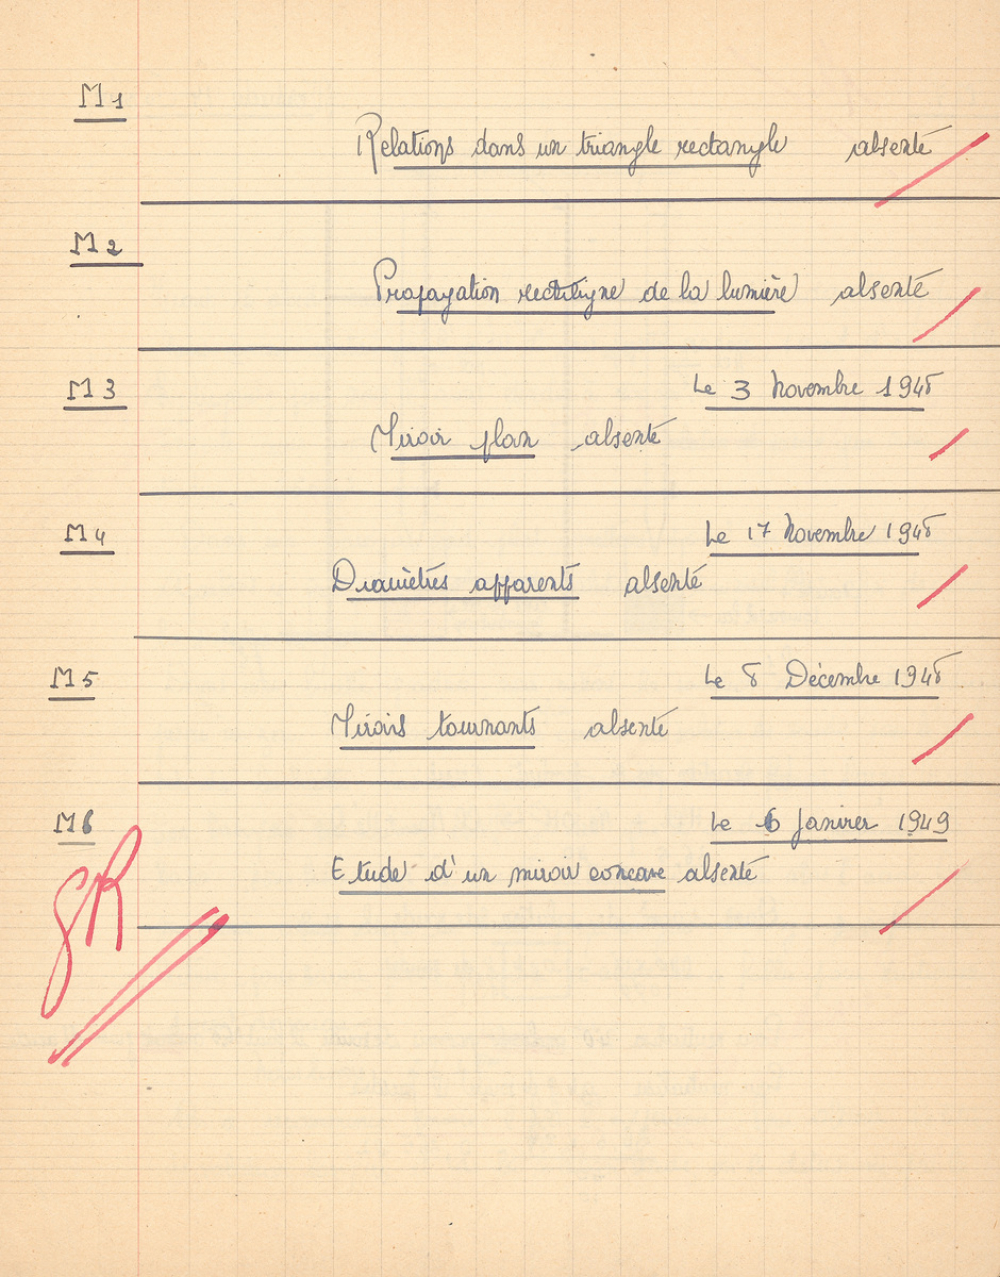 M1
Relations dans un triangle rectangle absente
M2
Propagation rectiligne de la lumière absente
M3 Le 3 Novembre 1948
Miroir plan absente
M4 Le 17 Novembre 1948
Diamètres apparents absente
M5 Le 8 Décembre 1948
Miroirs tournants absente
M6 Le 6 Janvier 1949
Etude d'un miroir concave absente